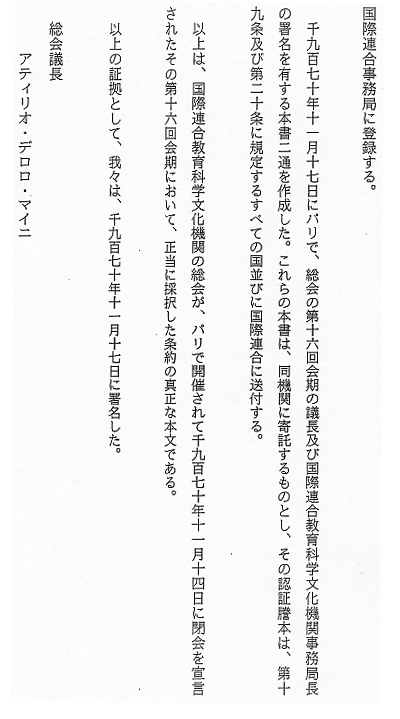 国際連合事務局に登録する。
千九百七十年十一月十七日にパリで、総会の第十六回会期の議長及び国際連合教育科学文化機関事務局長
の署名を有する本書二通を作成した。これらの本書は、同機関に寄託するものとし、その認証謄本は、第十
九条及び第二十条に規定するすべての国並びに国際連合に送付する。
以上は、国際連合教育科学文化機関の総会が、パリで開催されて千九百七十年十一月十四日に閉会を宣言
されたその第十六回会期において、正当に採択した条約の真正な本文である。
以上の証拠として、我々は、千九百七十年十一月十七日に署名した。
総会議長
アティリオ・デロロ・マイニ